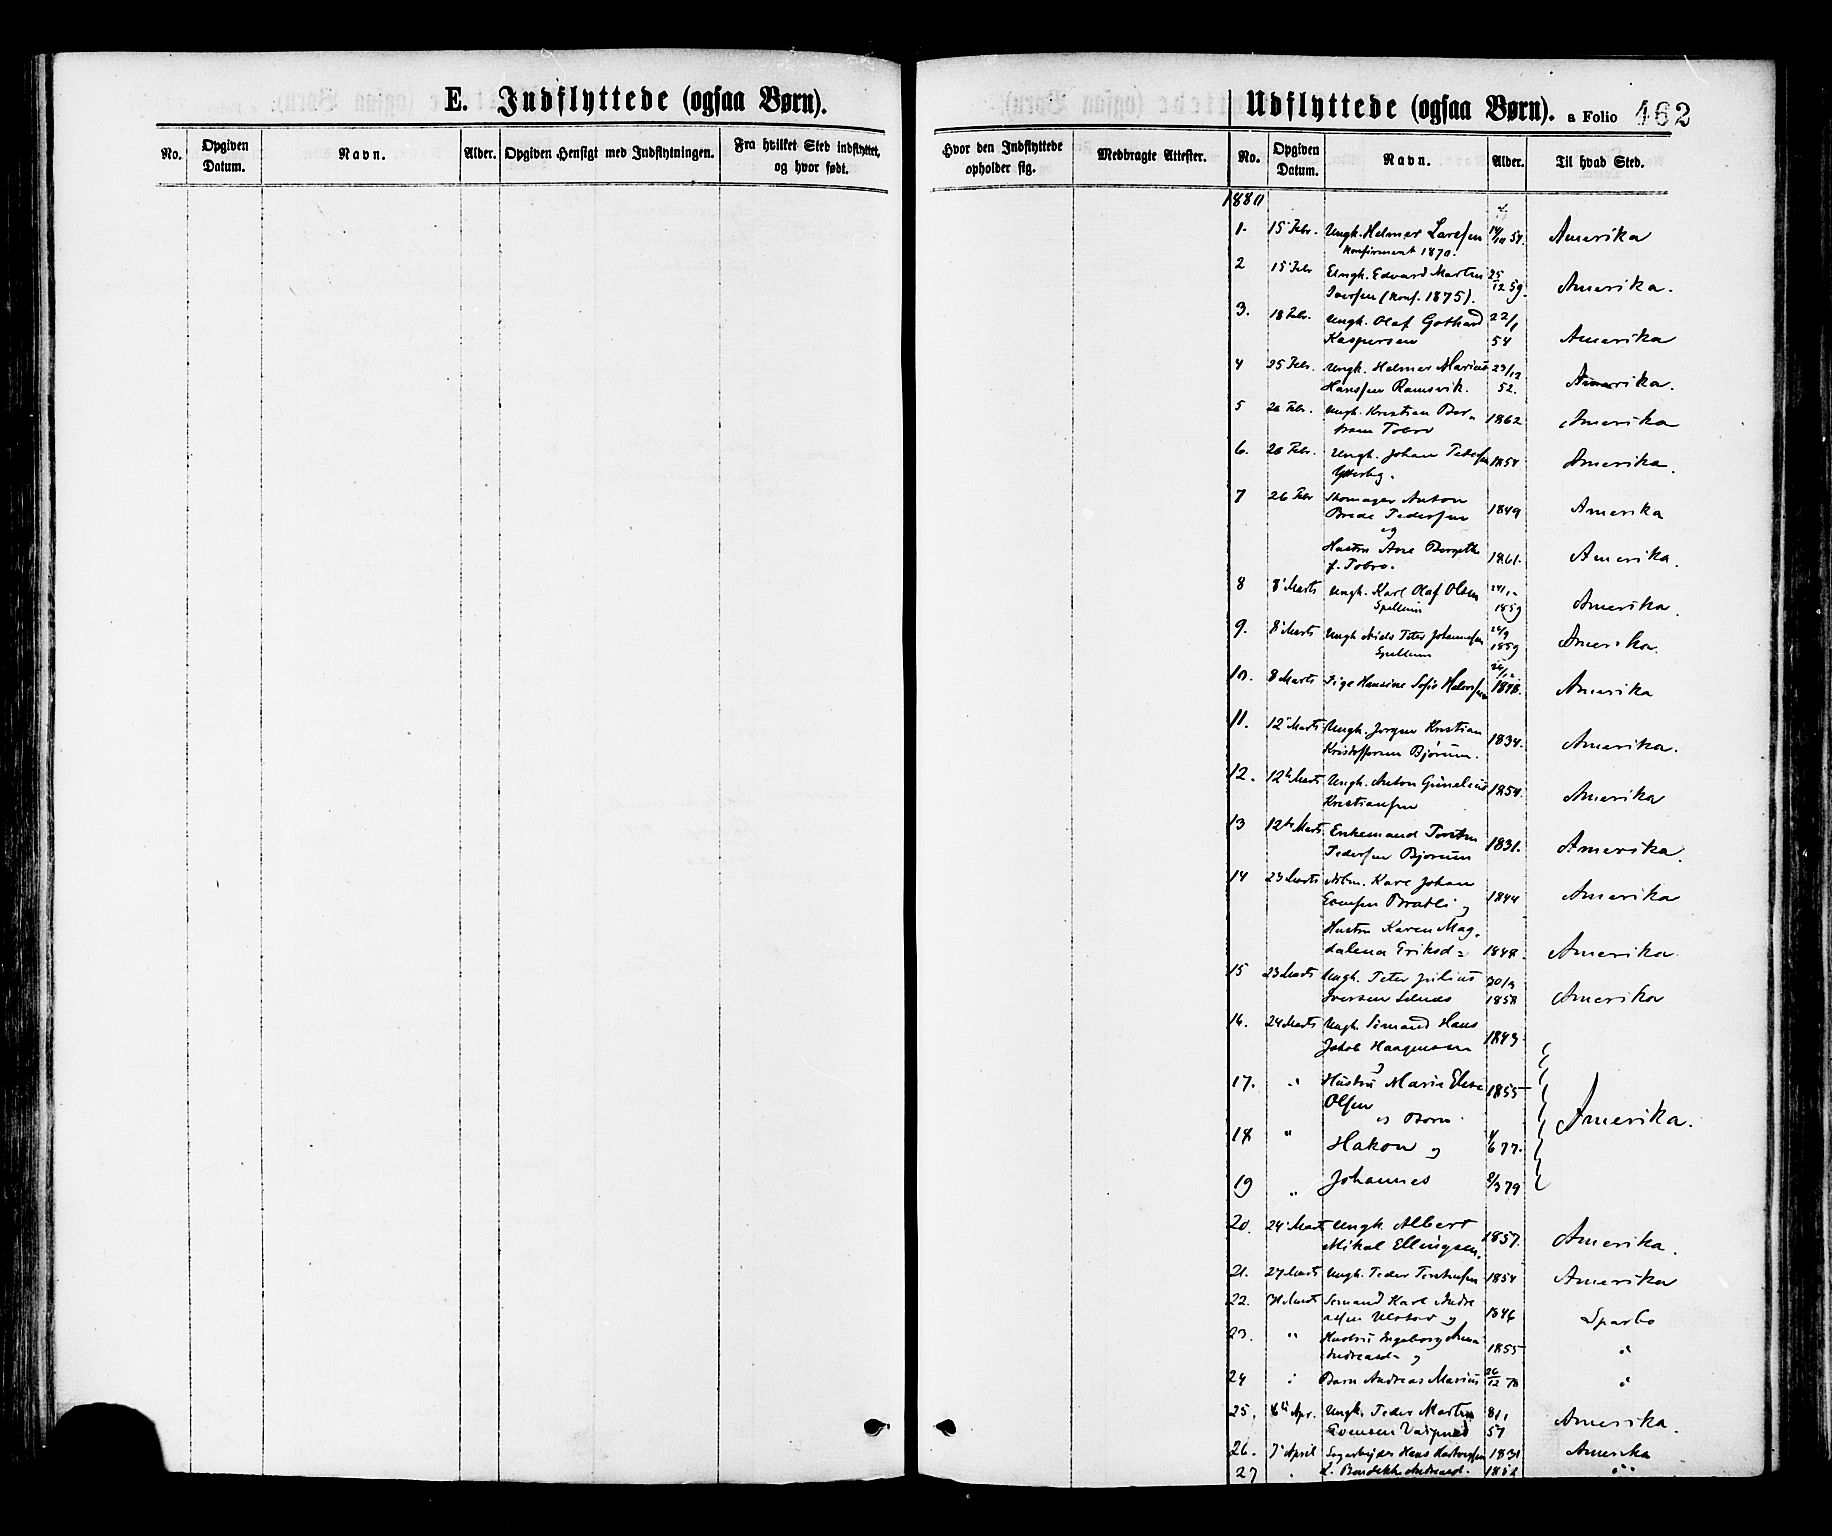 E. Indflyttede (ogsaa Børn).
No.
Opgiven Datum.
Navn.
Alder.
Opgiven Hensigt med Indflytningen.
Fra hvilket Sted indflyttet, og hvor født.
Hvor den Indflyttede opholder sig.
Medbragte Attester.
Udflyttede (ogsaa Børn). a Folio 462
No.
Opgiven Datum.
Navn.
Alder.
Til hvad Sted.
1880
1. 15 Febr. Ungk. Helmer Larsen 54. Amerika
Konfirmeret 1870.
2 15 Febr Ungk. Edvard Martin 25/12 59. Amerika.
Iversen (Konf. 1875).
3. 18 Febr. Ungk. Olaf Gothard 22/1 54 Amerika
Kaspersen
4 25 Febr. Ungk. Helmer Marius 52. Amerika.
Hanssen Ramsvik.
5 26 Febr. Ungk. Kristian 1862 Amerika
Tobro
6. 26 Febr. Ungk. Johan Pedersen 1854 Amerika.
7 26 Febr Skomager Anton 1849 Amerika
Brede Pedersen
og
Hustru Ane 1861. Amerika.
f. Tobro.
8 8 Marts Ungk. Karl Olaf Olsen 1859 Amerika.
Spillum
9. 8 Marts Ungk Niels Peter Johannesen 1859 Amerika.
Spillum
10. 8 Marts Pige Hansine Sofie 1848. Amerika
11. 12 Marts Ungk. Jørgen Kristian 1834. Amerika.
Kristoffersen Bjørum.
12. 12 Marts Ungk. Anton 1854. Amerika
Kristiansen
13 12 Marts. Enkemand Torsten 1831. Amerika.
Pedersen Bjørum
14 23 Marts Arbm. Karl Johan 1844 Amerika
Evensen og
Hustru Karen Mag- 1848. Amerika.
dalena Eriksd=
15 23 Marts Ungk. Peter Julius 1858 Amerika
Iversen
16. 24 Marts Ungk. Sømand Hans 1843
Jakob Haagensen
og
17. " Hustru Marie 1855
Olsen
og Børn
Amerika.
18 " Hakon og 77.
19 " Johannes 79
20. 24 Marts Ungk. Albert 1857. Amerika.
Mikal Ellingsen.
21. 27 Marts Ungk. Peder Torstensen 1854 Amerika
22. Marts Sømand Karl Andre- 1846 Sparbo
asen og
23. " Hustru Ingeborg Anna 1855 "
Andreasd= og
24 " Barn Andreas Marius 26/12 78 "
25. 6te Apr. Ungk. Peder Martin 57 Amerika.
Evensen
26. 7 April Hans 1831 Amerika
27 " Andreasd. "